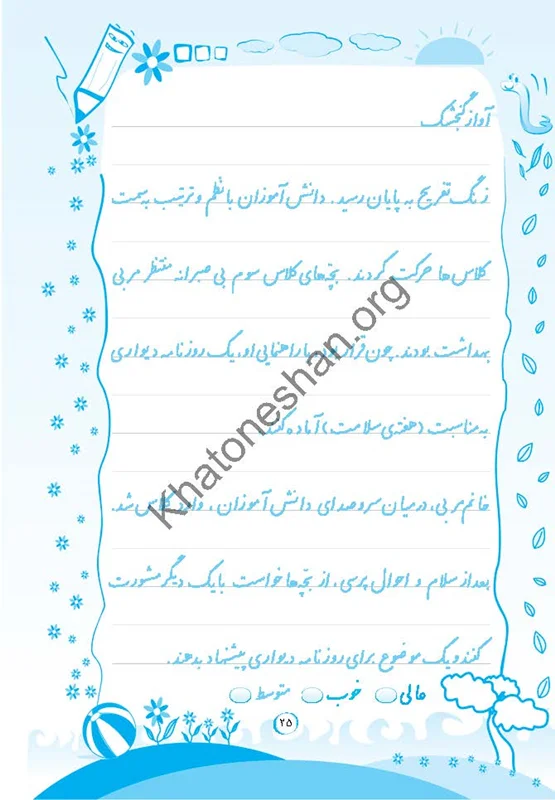 آواز گنجشک
زنگ تفریح به پایان رسید. دانش‌آموزان با نظم و ترتیب به سمت
کلاس‌ها حرکت کردند. بچّه‌های کلاس سوم بی صبرانه منتظر مربی
بهداشت بودند چون قرار بود با راهنمایی او، یک روزنامه دیواری
به مناسبت (هفته‌ی سلامت) آماده کنند.
خانم مربی، در میان سر و صدای دانش آموزان، وارد کلاس شد.
بعد از سلام و احوال پرسی، از بچّه‌ها خواست با یک دیگر مشورت
کنند و یک موضوع برای روزنامه دیواری پیشنهاد بدهند.
عالی خوب متوسط
۲۵
Khatoneshan.org